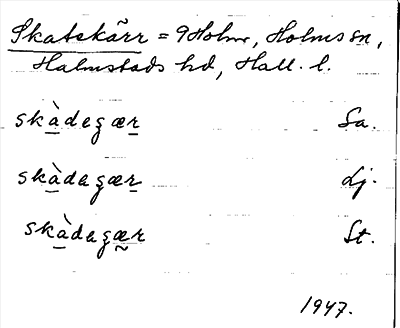 Skatekärr = 9 Holm, Holms sn,
Halmstads hd, Hall. l.
skàdegær Sa.
skàdagær Lj.
skàdagær St.
1947.